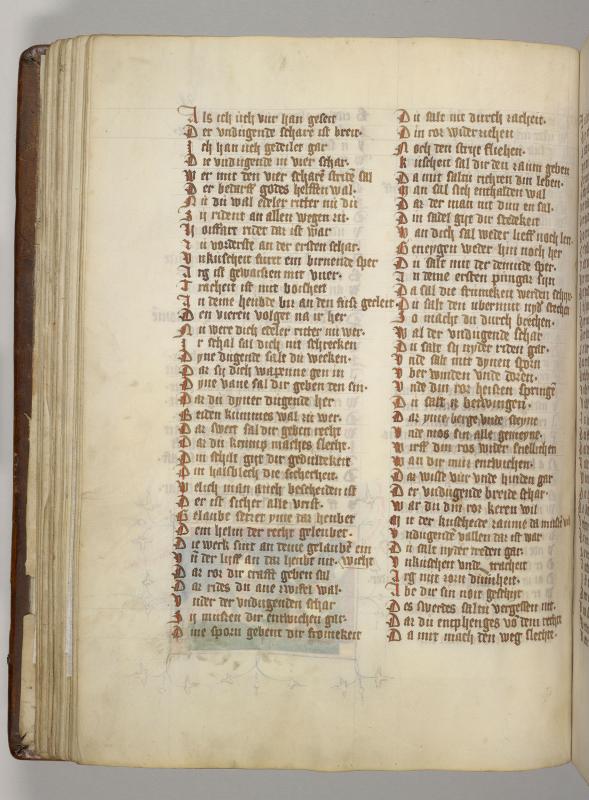 Als ich uch vur han geseit
Der vndugende schare ist breit
Ich han uch gedeilet gar
Die vndugende in vier schar.
Wer mit den vier scharē stridē sal
Der bedarff godes helffen wal.
Nu du wal edeler ritter nu du
Zu rident an allen wegen zu.
Hoiffart rider dar ist war
Zu vorderste an der ersten schar.
Vnkuscheit furet ein birnende sper
Arg ist gewarsen mit
Tracheit ist mit boisheit
In deme heubde bu an den geeleit
Den vieren volget na ir her
Nu were dich edeler ritter nu wer.
Ir schal sal dich nit schrecken
Dyne dugende salt du wecken.
Dar zu dich wapenne gen in
Dyne vane sal dir geben den sin.
Dar du dyner dugende her
Beiden kunnes wal zu wer.
Dar swert sal dir geben recht
Dar du kennis maches slecht.
Din schilt gyt dir gedultekeit
Din halsblech die sicherheit.
Welich man auch bescheiden ist
Der ist sicher alle vrist.
Gelaube setzet yme dar heubet
Dem helm der recht geleubet.
Die werk sint an deme gelaubē ein
Vn der lyff an dar heubt nit wicht
Dar ros dir crafft geben sal
Dar rides du ane zwifel wal.
Vnder der vndugenden schar
Zu mussen dir entwichen gar.
Dine sporn gebent dir fromekeit
Du salt nit durch racheit.
Din ros wider ziehen
Noch den strijt fliehen.
Kuscheit sal dir den zaum geben
Da mit salm richten din leben.
Man sal sich enthalden wal
Dar der man nit dun en sal.
Din sadel gyt dir stedekeit
Wan dich sal weder lieff noch leit
Geneygen weder hin noch her
Du salt mit der demude sper.
In deme ersten pungar sijn
Da sal die fromekeit werden schin
Du salt den ubermut nyd stechen
So macht du durch brechen.
Wal der vndugende schar
Du salt sy nyder riden gar.
Vnde salt mit dynen sporn
Vber winden vnde dorn.
Vnde din ros heissen springē
Du salt is betwingen.
Dar yme berge vnde steyne
Vnde mos sin alle gemeyne.
Wirff din ros wider snellichen
Wan dir mus entwichen.
Dar wiste vur vnd hinden gar
Der vndugende breide schar.
War du din ros keren wil
Mit der kuschede zaume
Vndugende vallen dar ist war
Du salt nyder treden gar.
Vnkuschen vnde tracheit
Arg mit zorn dumheit.
Abe dir sin noit geschijt
Des swerdes salen vergessen nit.
Dar du entphenges vō dem rechte
Da mit mach den weg slechte.